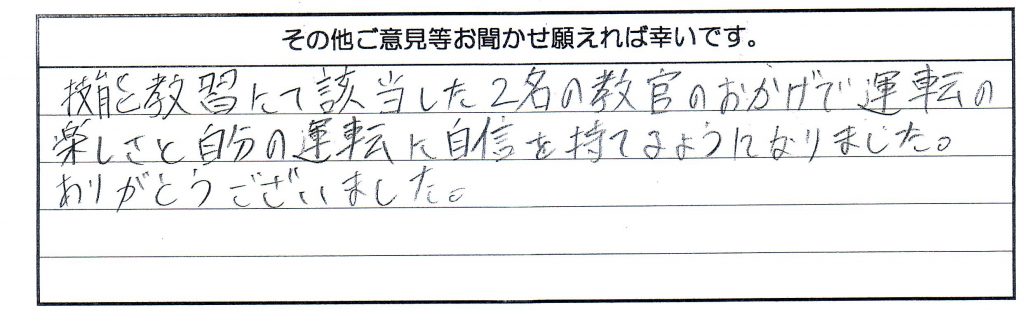 その他ご意見等お聞かせ願えれば幸いです。
技能教習にて該当した2名の教官のおかげで運転の
楽しさと自分の運転に自信を持てるようになりました。
ありがとうございました。